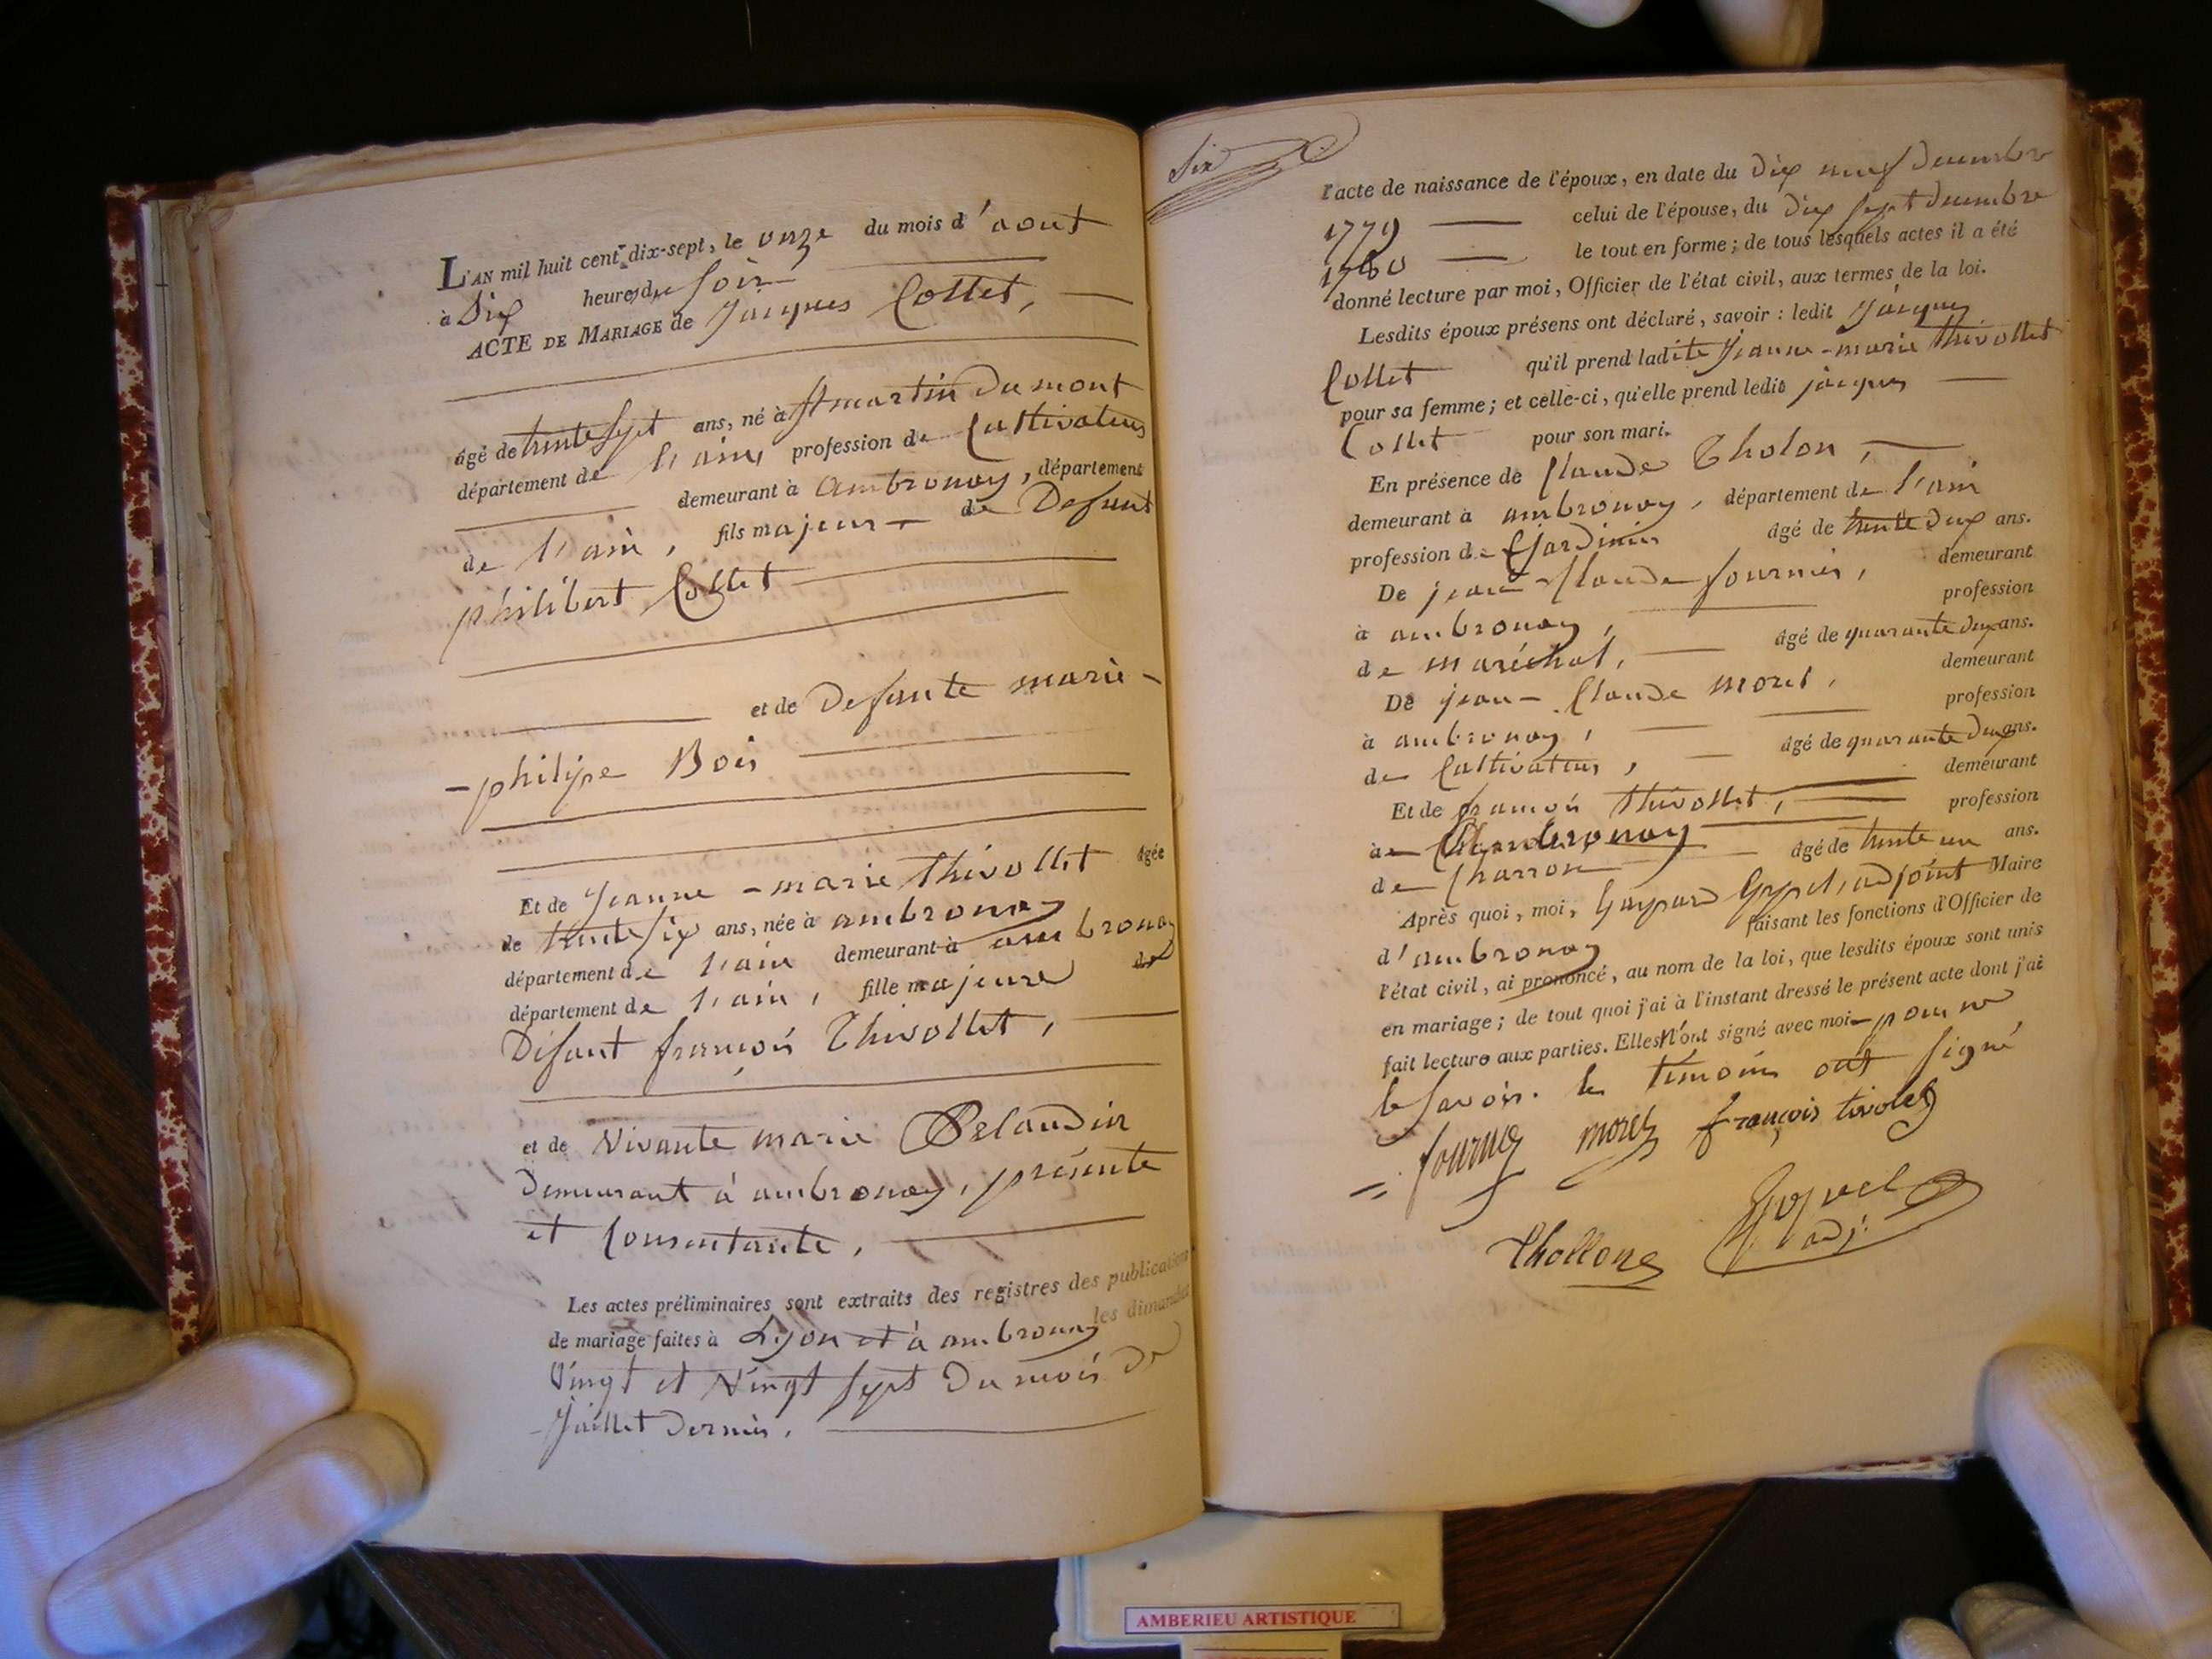 L'AN mil huit cent dix-sept, le onze du mois d'aout
à Dix heures du soir
ACTE DE MARIAGE de Jacques Collet,
âgé de trente sept ans, né à St martin du mont
département de l'ain, profession de Cultivateur
demeurant à ambronay, département
de l'ain, fils majeur de Defunt
philibert Collet
et de Defunte marie-
-philipe Bois
Et de Jeanne-marie thivollet âgée
de trente six ans, née à ambronay
département de l'ain demeurant à ambronay
département de l'ain, fille majeure de
Défunt françois Thivollet,
et de Vivante marie Belaudin
Demeurant à ambronay, présente
et Consentante,
Les actes préliminaires sont extraits des registres des publications
de mariage faites à Lyon et à ambronay les dimanches
Vingt et Vingt sept du mois de
Juillet dernier.
Six
l'acte de naissance de l'époux, en date du dix neuf decembre
1779 celui de l'épouse, du dix sept decembre
1780 le tout en forme; de tous lesquels actes il a été
donné lecture par moi, Officier de l'état civil, aux termes de la loi.
Lesdits époux présens ont déclaré, savoir : ledit Jacques
Collet qu'il prend ladite Jeanne-marie thivollet
pour sa femme; et celle-ci, qu'elle prend ledit jacques
Collet pour son mari.
En présence de Claude Tholon,
demeurant à ambronay, département de l'ain
profession de Jardinier âgé de trente deux ans.
De jean-Claude fournier, demeurant
à ambronay, profession
de maréchal, âgé de quarante deux ans.
De jean-Claude moret, demeurant
à ambronay, profession
de Cultivateur, âgé de quarante deux ans.
Et de françois thivollet, demeurant
à ambronay profession
de Charron âgé de trente un ans.
Après quoi, moi, Gaspard adjoint Maire
d'ambronay faisant les fonctions d'Officier de
l'état civil, ai prononcé, au nom de la loi, que lesdits époux sont unis
en mariage; de tout quoi j'ai à l'instant dressé le présent acte dont j'ai
fait lecture aux parties. Elles n'ont signé avec moi pour ne
le savoir. les témoins ont signé
= fournier moret françois tivolet
thollone adj.
AMBERIEU ARTISTIQUE